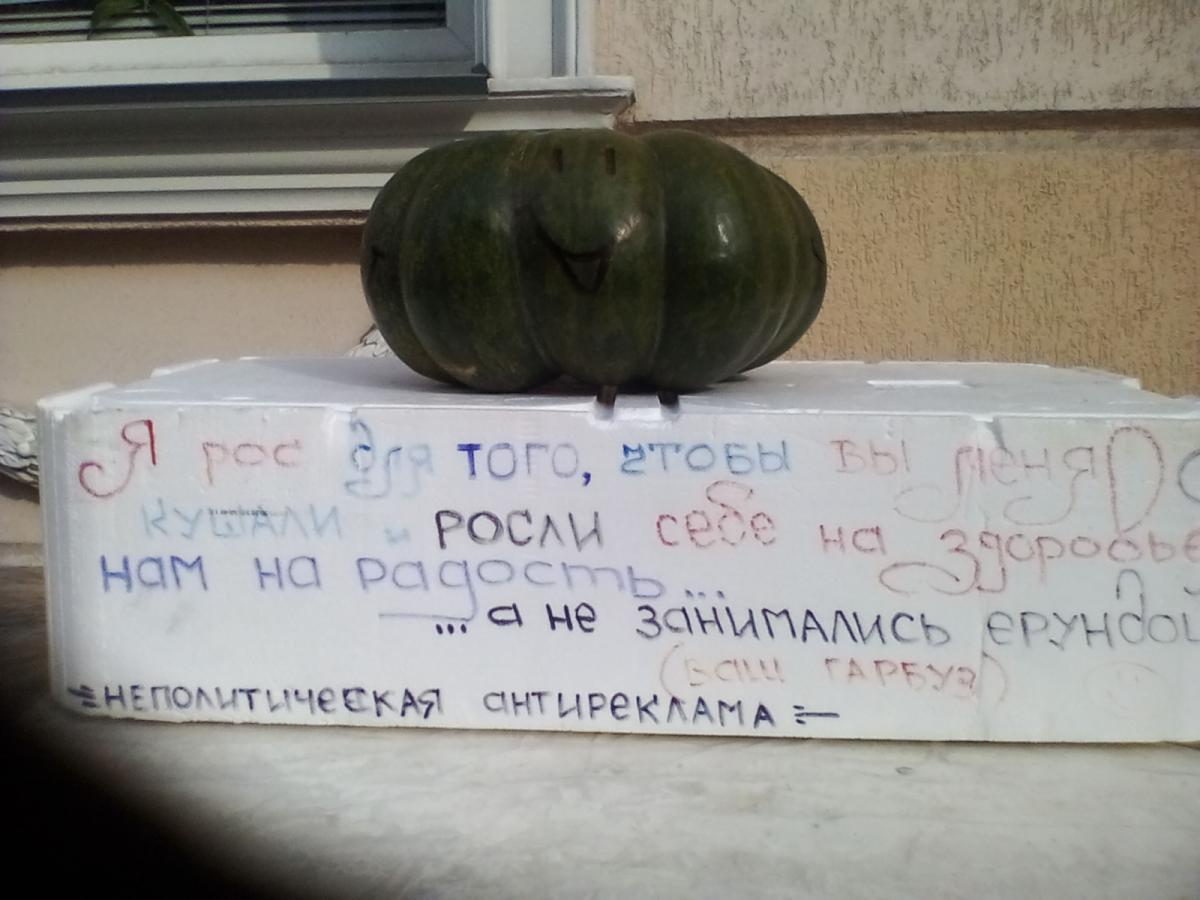 Я рос для того, чтобы вы меня
кушали и росли себе на здоровье
нам на радость...
... а не занимались ерундой
(Ваш гарбуз)
=НЕПОЛИТИЧЕСКАЯ антиреклама=